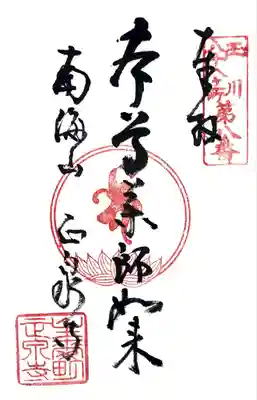 奉拝
玉川
八十八ヶ所第八番
本尊薬師如来
南海山 正泉寺
正泉寺